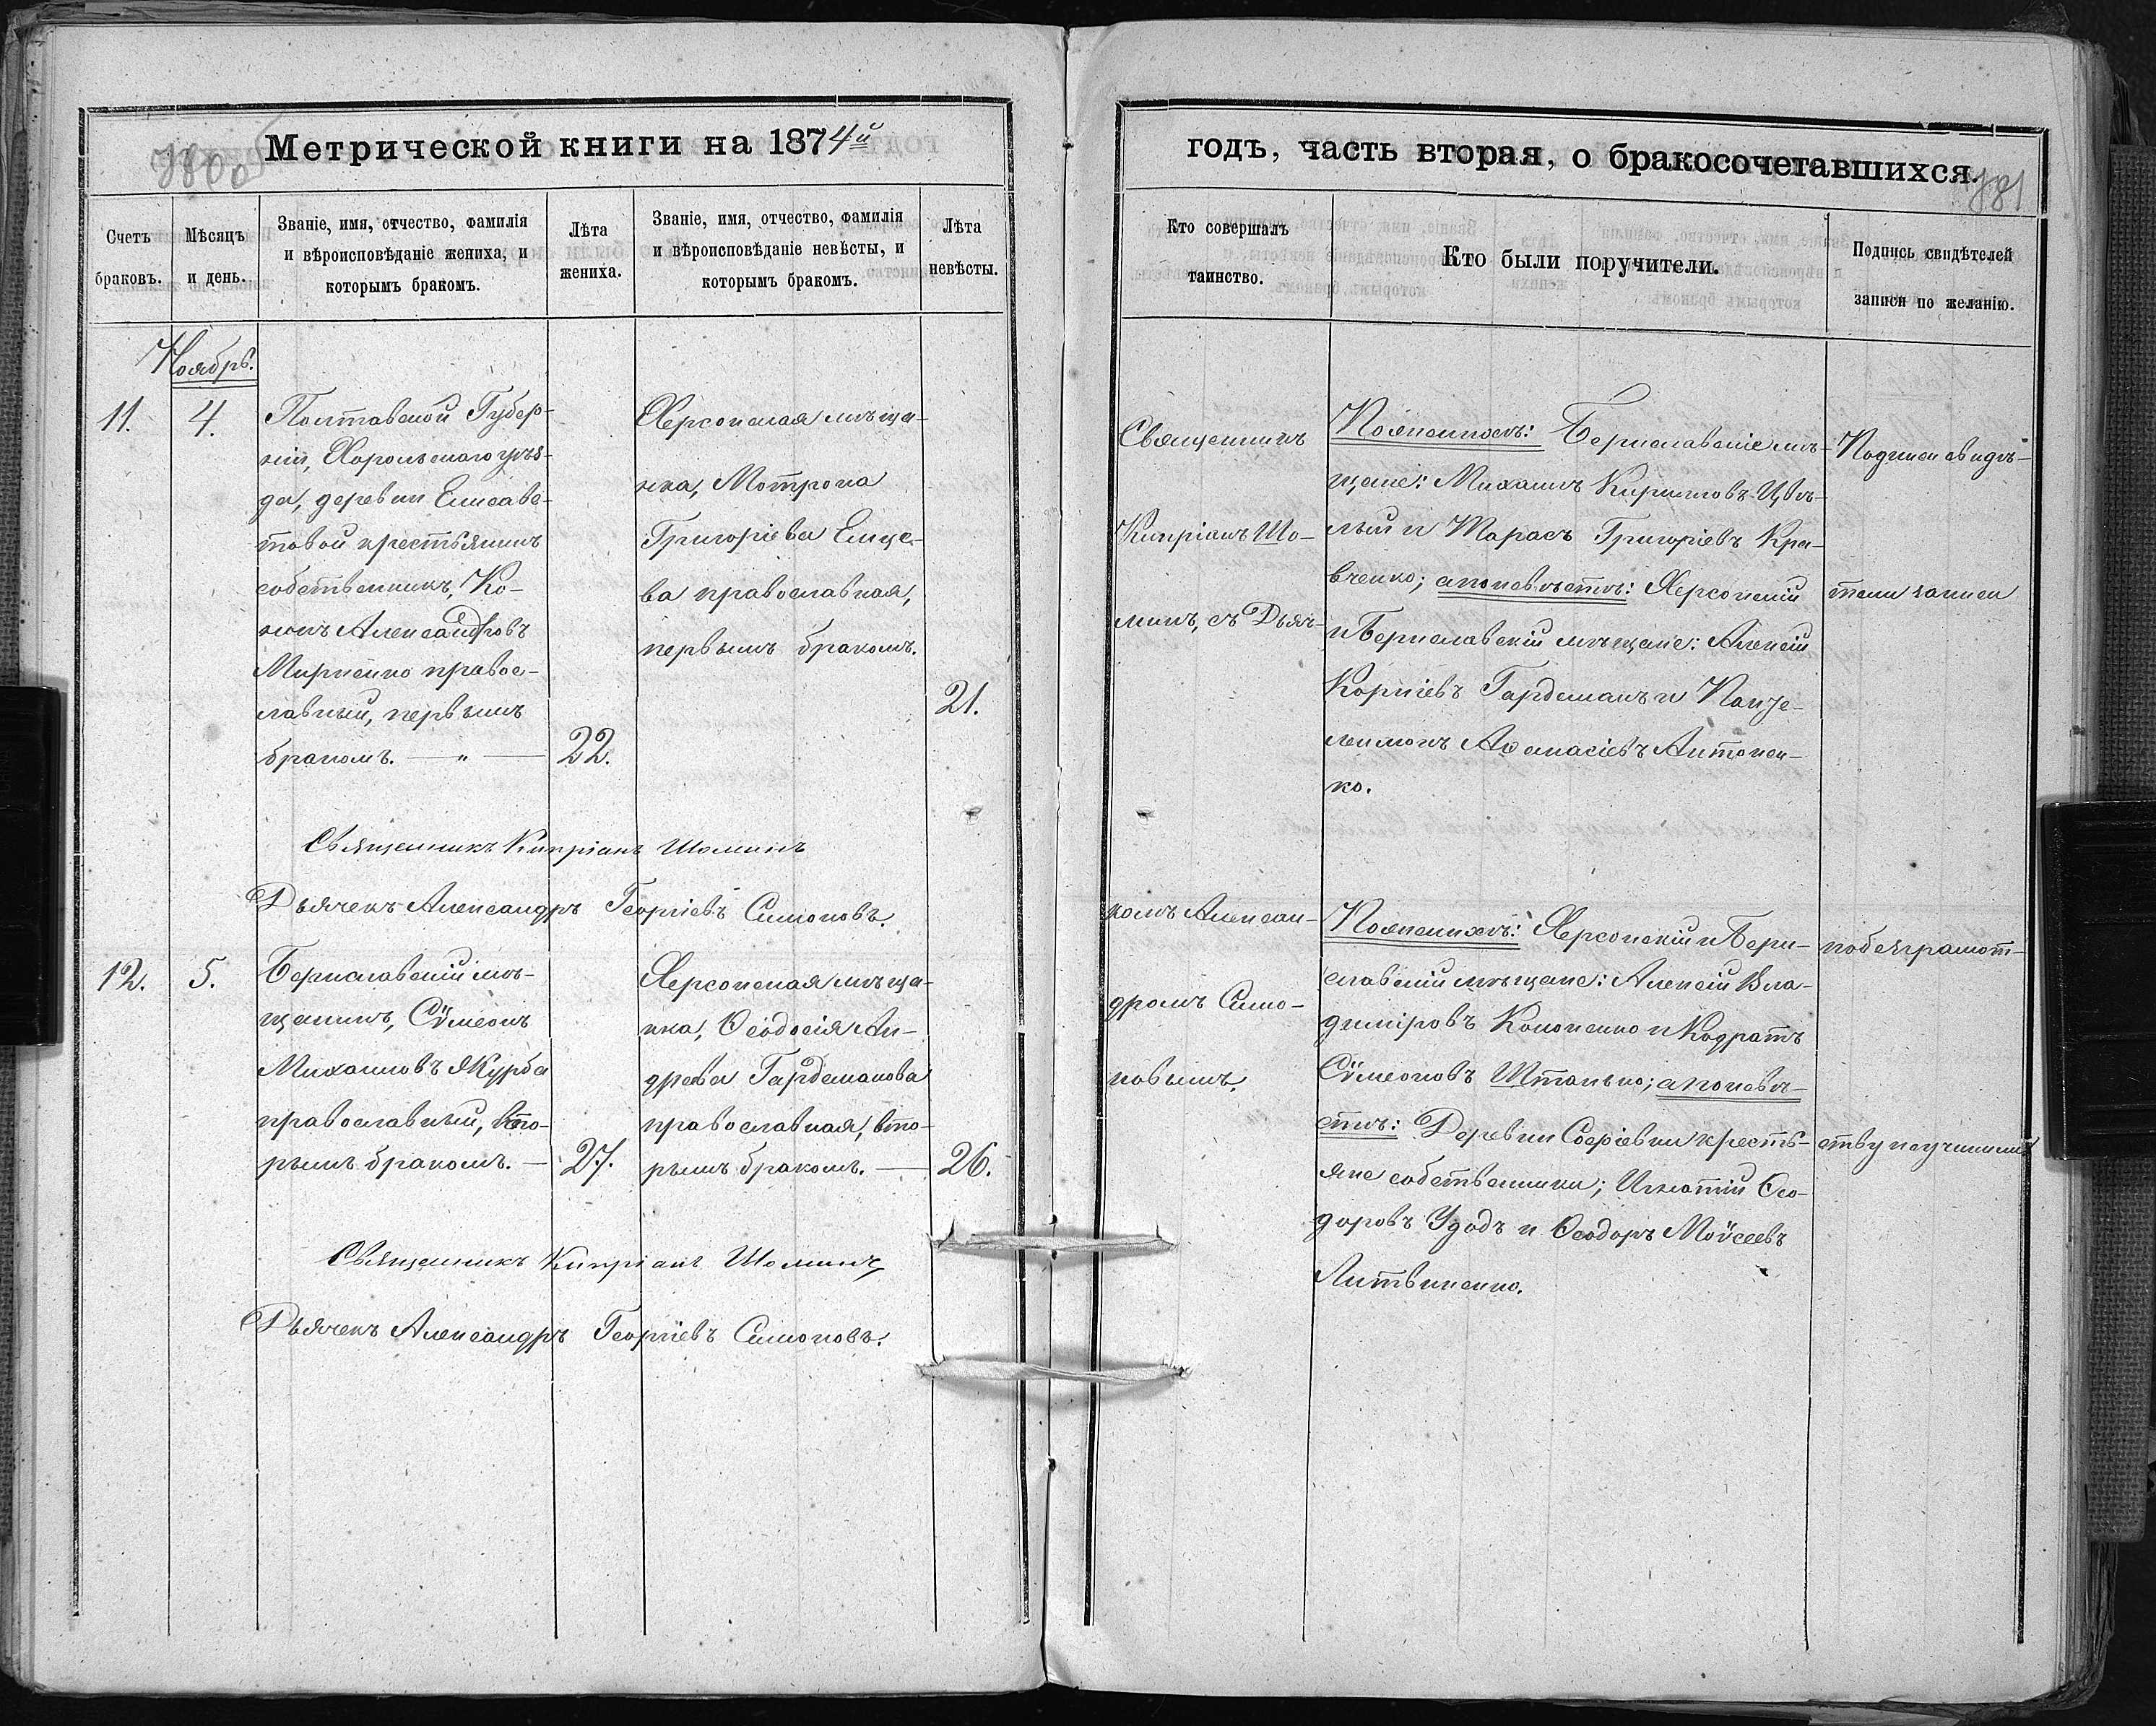 Метрической книги на 1874й
Счетъ браковъ.
Мѣсяцъ и день.
Званіе, имя, отчество, фамилія
и вѣроисповѣданіе жениха, и
которымъ бракомъ.
Лѣта
жениха.
Званіе, имя, отчество, фамилія
и вѣроисповѣданіе невѣсты, и
которымъ бракомъ.
Лѣта
невѣсты.
Ноябрь.
11.
4.
Полтавской Губер-
ніи, Хорольскаго уѣз-
да, деревни Елисаве-
товой крестьянинъ
собственникъ, Ко-
нонъ Александровъ
Мирненко правос-
лавный, первымъ
бракомъ. — „ —
22.
Херсонская мѣща-
нка, Мотрона
Григоріева
ва православная,
первымъ бракомъ.
21.
Священникъ Кипріанъ Шоминъ
Дьячекъ Александръ Георгіевъ Симоновъ.
12.
5.
Бериславскій мѣ-
щанинъ, Сѵмеонъ
Михаиловъ Якурба
православный, вто-
рымъ бракомъ. —
27.
Херсонская мѣща-
нка, Ѳеодосія Ан-
древа Гардеманова
православная, вто-
рымъ бракомъ. —
26.
Священникъ Кипріанъ Шоминъ
Дьячекъ Александръ Георгіевъ Симоновъ.
годъ, часть вторая, о бракосочетавшихся.
781
Кто совершалъ
таинство.
Кто были поручители.
Подпись свидѣтелей
записи по желанію.
Священникъ
Кипріанъ Шо-
минъ, съ Дьяч-
комъ Алексан-
дромъ Симо-
новымъ.
По женихѣ: Бериславскіе мѣ-
щане: Михаилъ Кириловъ Цѣл-
лый и Тарасъ Григоріевъ Кра-
вченко; а по невѣстѣ: Херсонскій
и Бериславскій мѣщане: Алексій
Корніевъ Гардеманъ и Панте-
леимонъ Аѳанасіевъ Антонен-
ко.
По женихѣ: Херсонскій и Бери-
славскій мѣщане: Алексій Вла-
диміровъ Кононенко и Кодратъ
Сѵмеоновъ Штанько; а по невѣ-
стѣ: Деревни Софіевки кресть-
яне собственники; Игнатій Ѳео-
доровъ Удодъ и Ѳеодоръ Моѵсеевъ
Литвиненко.
Подписи свидѣ-
тели записи
по безграмот-
ству неучинили